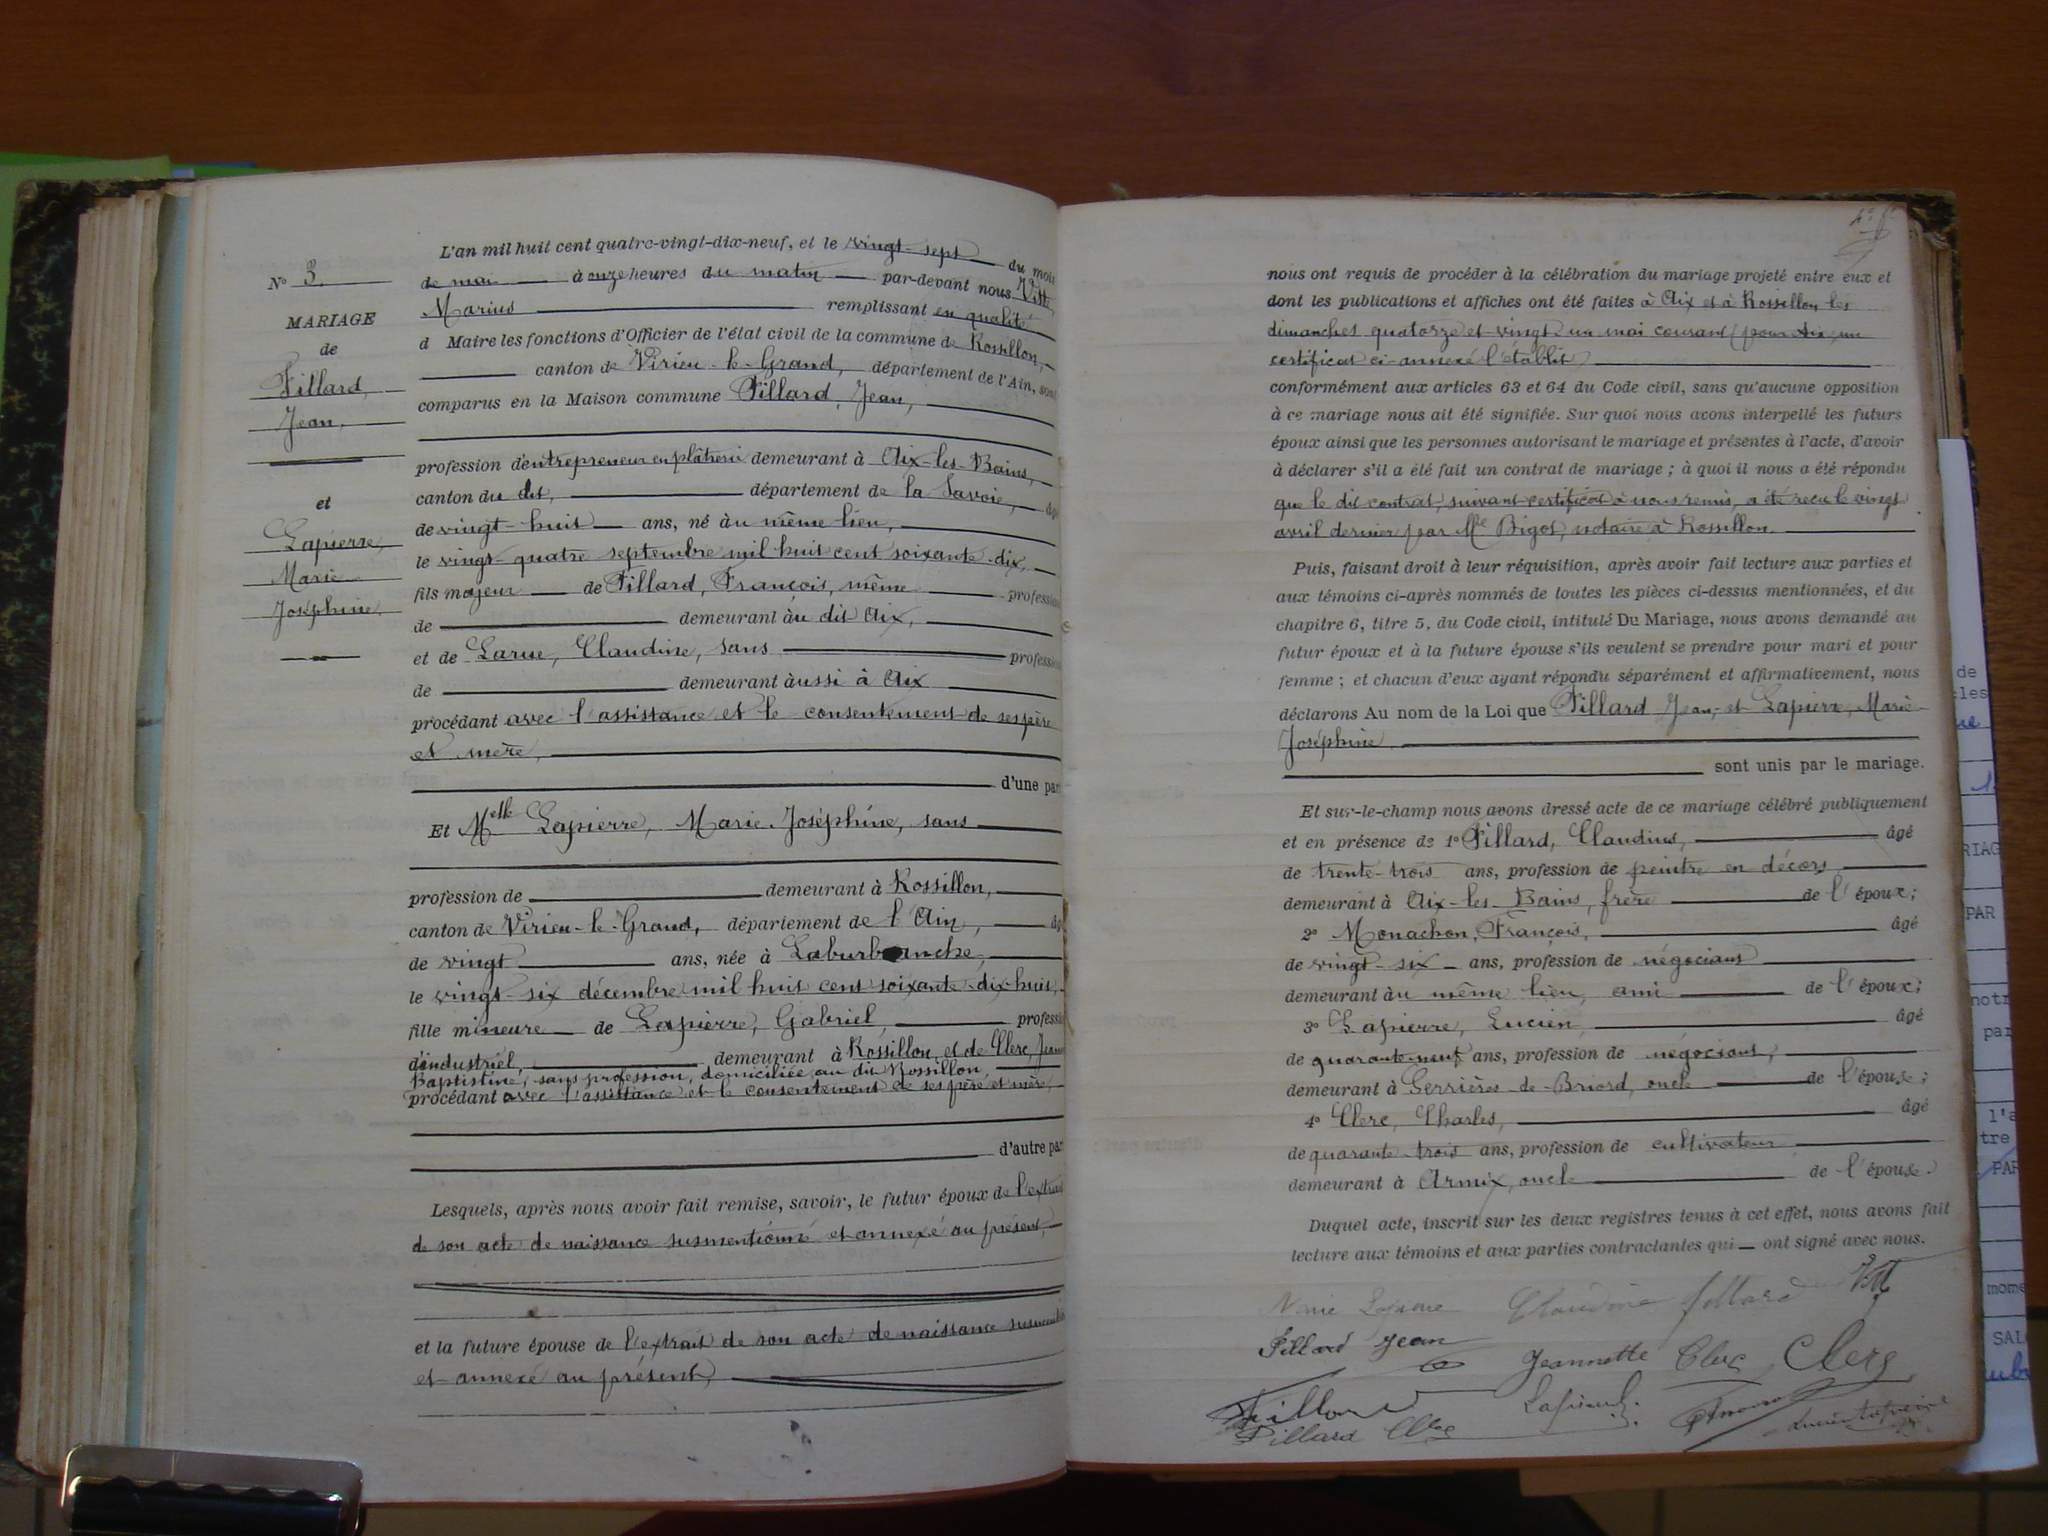 N° 3.
MARIAGE
de
Fillard,
Jean,
et
Lapierre,
Marie
Joséphine.
L'an mil huit cent quatre-vingt-dix-neuf, et le vingt-sept du mois
de mai à onze heures du matin par-devant nous Vitte
Marius remplissant en qualité
d Maire les fonctions d'Officier de l'état civil de la commune de Rossillon,
canton de Virieu-le-Grand, département de l'Ain, sont
comparus en la Maison commune Fillard, Jean,
profession d'entrepreneur en plâtrerie demeurant à Aix-les-Bains,
canton du dit, département de la Savoie,
de vingt-huit ans, né au même lieu,
le vingt-quatre septembre mil huit cent soixante-dix,
fils majeur de Fillard, François, même profession
de demeurant au dit Aix,
et de Larue, Claudine, sans profession
de demeurant aussi à Aix
procédant avec l'assistance et le consentement de ses père
et mère,
d'une par
Et Melle Lapierre, Marie Joséphine, sans
profession de demeurant à Rossillon,
canton de Virieu-le-Grand, département de l'Ain, âgé
de vingt ans, née à Laburbanche,
le vingt-six décembre mil huit cent soixante-dix-huit,
fille mineure de Lapierre, Gabriel, professi
d'industriel, demeurant à Rossillon, et de Clerc, Jeanne
Baptistine, sans profession, domiciliée au dit Rossillon,
procédant avec l'assistance et le consentement de ses père et mère,
d'autre par
Lesquels, après nous avoir fait remise, savoir, le futur époux de l'extrait
de son acte de naissance susmentionné et annexé au présent,
et la future épouse de l'extrait de son acte de naissance
et annexé au présent,
nous ont requis de procéder à la célébration du mariage projeté entre eux et
dont les publications et affiches ont été faites à Aix et à Rossillon les
dimanches quatorze et vingt un mai courant (pour Aix, un
certificat ci-annexé l'établit)
conformément aux articles 63 et 64 du Code civil, sans qu'aucune opposition
à ce mariage nous ait été signifiée. Sur quoi nous avons interpellé les futurs
époux ainsi que les personnes autorisant le mariage et présentes à l'acte, d'avoir
à déclarer s'il a été fait un contrat de mariage ; à quoi il nous a été répondu
que le dit contrat, suivant certificat à nous remis, a été reçu le vingt
avril dernier par Me Bigot, notaire à Rossillon.
Puis, faisant droit à leur réquisition, après avoir fait lecture aux parties et
aux témoins ci-après nommés de toutes les pièces ci-dessus mentionnées, et du
chapitre 6, titre 5, du Code civil, intitulé Du Mariage, nous avons demandé au
futur époux et à la future épouse s'ils veulent se prendre pour mari et pour
femme ; et chacun d'eux ayant répondu séparément et affirmativement, nous
déclarons Au nom de la Loi que Fillard Jean, et Lapierre, Marie-
Joséphine
sont unis par le mariage.
Et sur-le-champ nous avons dressé acte de ce mariage célébré publiquement
et en présence de 1° Fillard, Claudius, âgé
de trente-trois ans, profession de peintre en décors
demeurant à Aix-les-Bains, frère de l'époux;
2° Monachon, François, âgé
de vingt-six ans, profession de négociant
demeurant au même lieu, ami de l'époux;
3° Lapierre, Lucien, âgé
de quarante-neuf ans, profession de négociant,
demeurant à Serrières-de-Briord, oncle de l'épouse;
4° Clerc, Charles, âgé
de quarante-trois ans, profession de cultivateur
demeurant à Armix, oncle de l'épouse.
Duquel acte, inscrit sur les deux registres tenus à cet effet, nous avons fait
lecture aux témoins et aux parties contractantes qui ont signé avec nous.
Marie Lapierre Claudine fillard
Fillard Jean Jeannette Clerc Clerc
Fillard
Fillard Lucien Lapierre